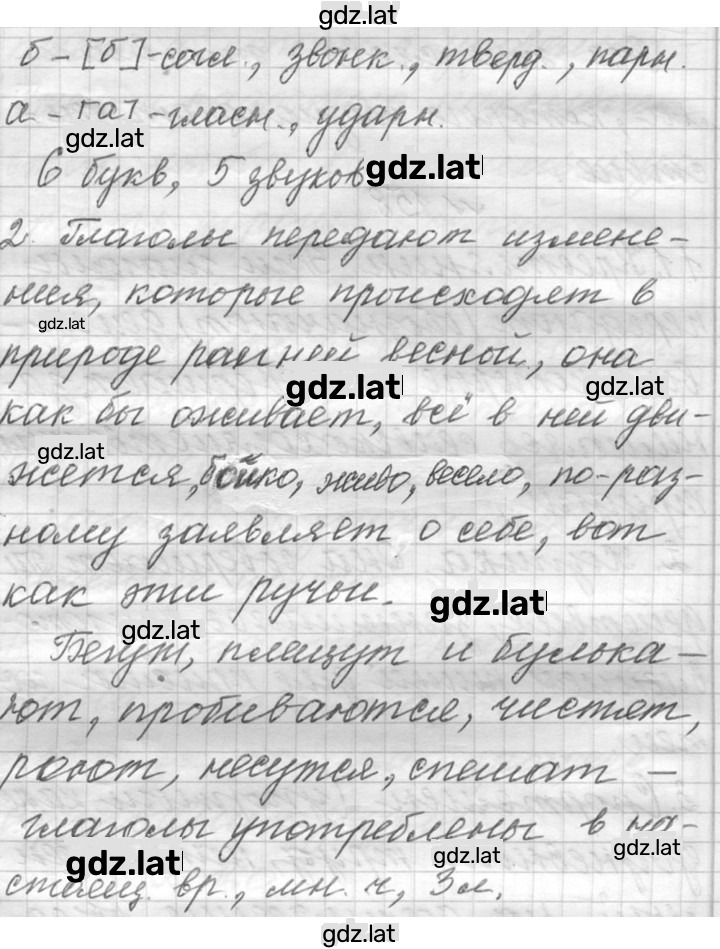 gdz.lat
б - [б] - согл., звонк., тверд., парн.
а - [а] - гласн., ударн.
gdz.lat
6 букв, 5 звуков
gdz.lat
2. Глаголы передают измене-
ния, которые происходят в
gdz.lat
природе ранней весной, она
gdz.lat
gdz.lat
как бы оживает, всё в ней дви-
gdz.lat
жется, бойко, живо, весело, по-раз-
ному заявляет о себе, вот
как эти ручьи.
gdz.lat
gdz.lat
Бегут, плещут и булька-
ют, пробиваются, чистят,
роют, несутся, спешат -
глаголы употреблены в на-
gdz.lat
gdz.lat
gdz.lat
стоящ. вр., мн. ч, 3 л.
gdz.lat